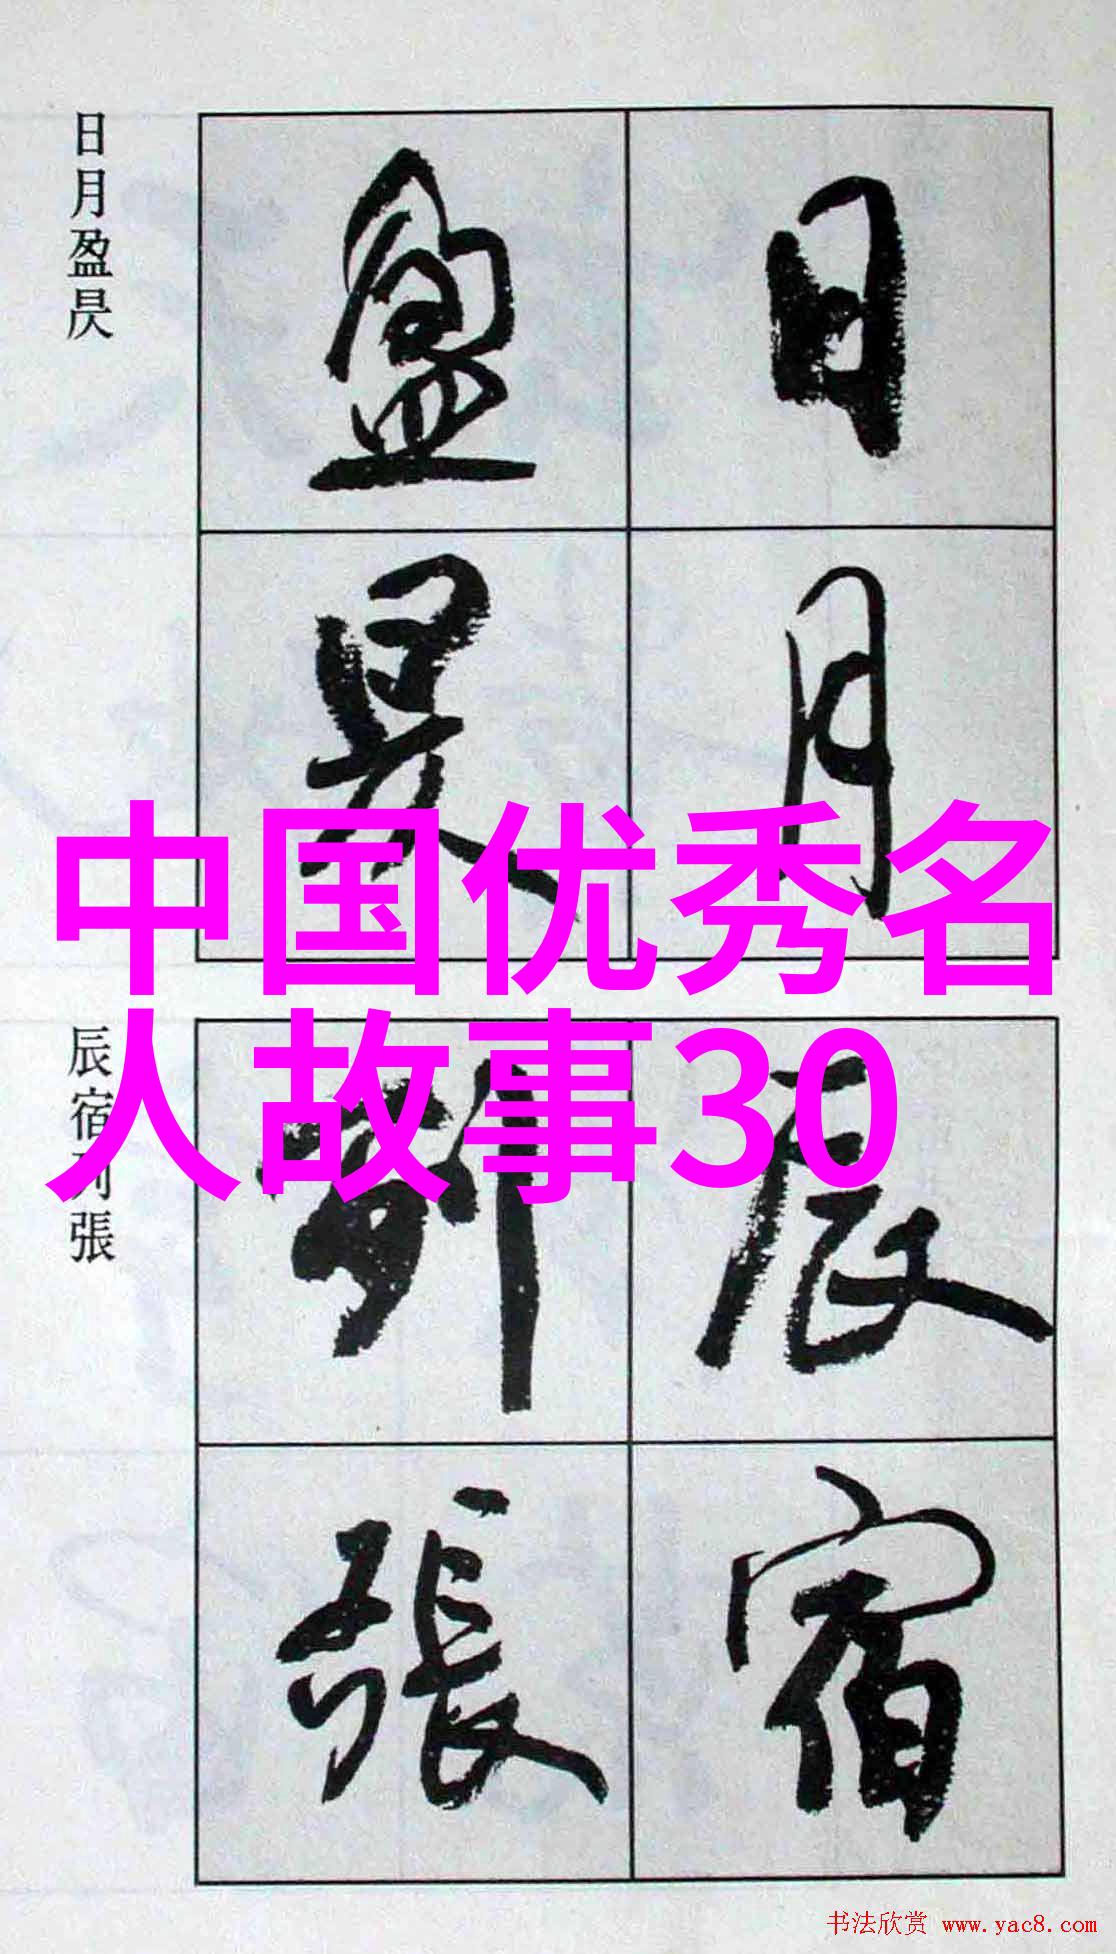 日月盈昃
日月
盈昃
中国优秀名
人故事30
辰宿列張
辰宿
列張
书法欣赏 www.yac8.com